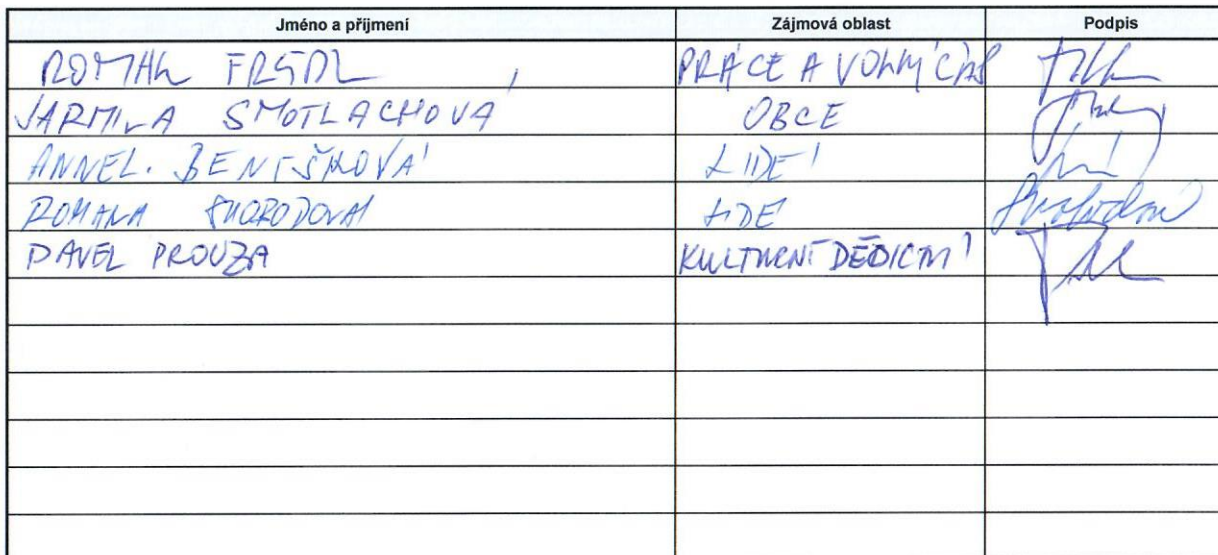 Jméno a příjmení Zájmová oblast Podpis
ROMAN PRÁCE A VOLNÝ ČAS
JARMILA SMOTLACHOVÁ OBCE
ANNEL. BENEŠKOVÁ LIDÉ
ROMANA LIDÉ
DAVEL PROUZA KULTURNÍ DĚDICTVÍ